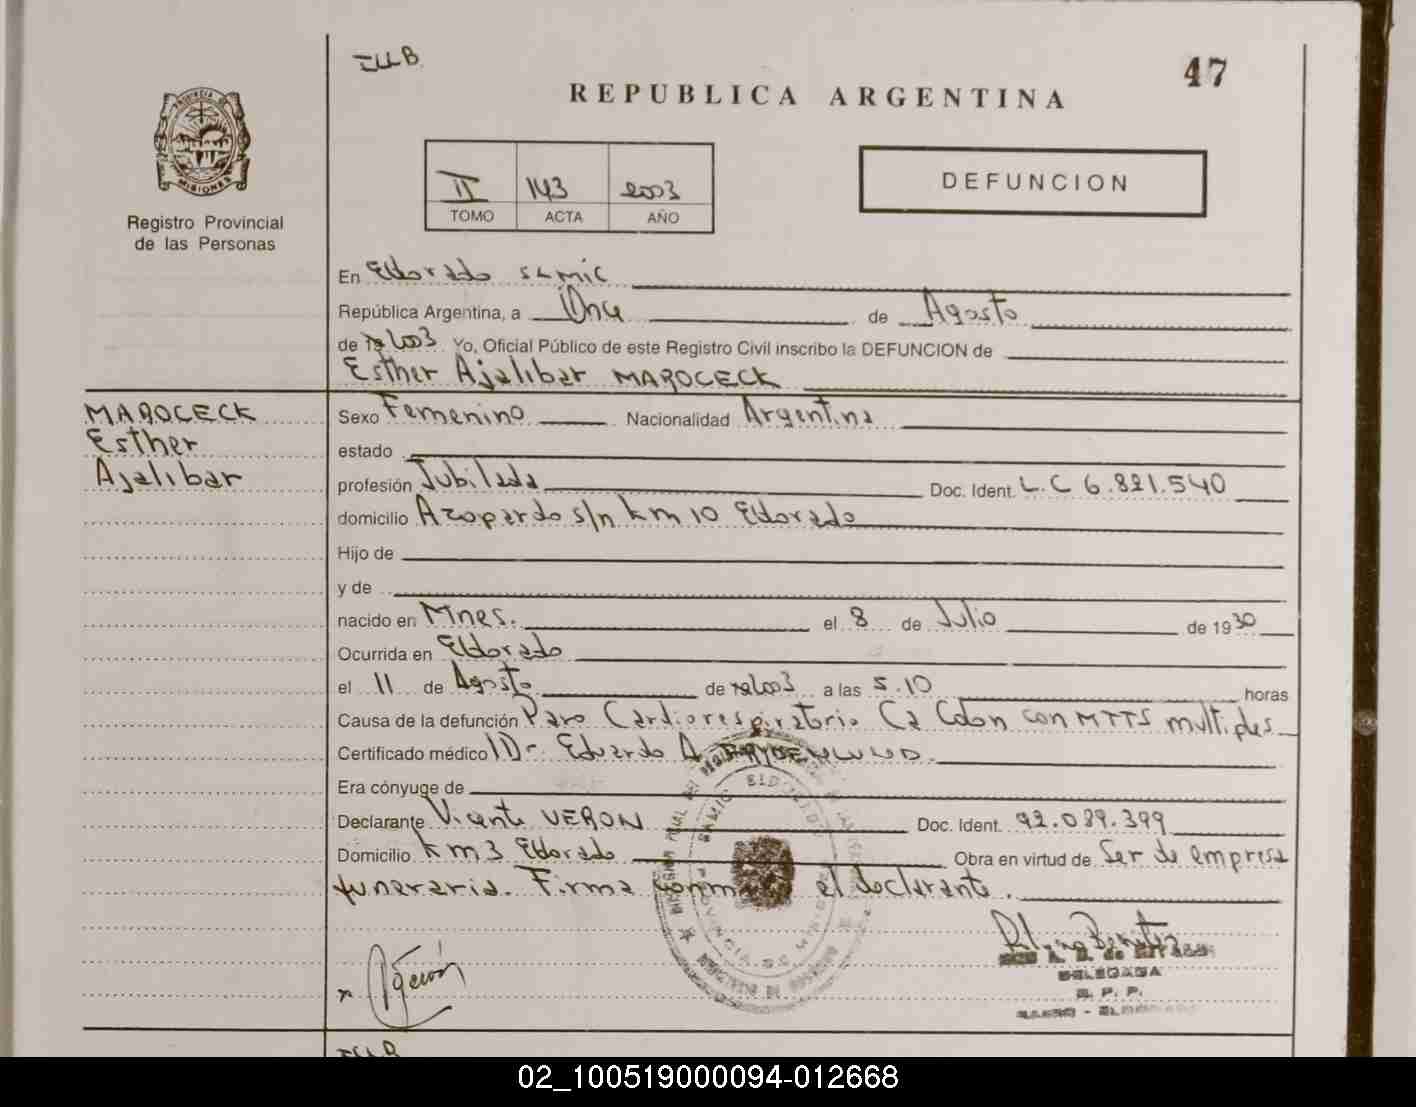 ILLB
47
REPUBLICA ARGENTINA
PROVINCIA DE
MISIONES
Registro Provincial
de las Personas
II 143 2003
TOMO ACTA AÑO
DEFUNCION
En Eldorado SAMIC
República Argentina, a Once de Agosto
de 19 2003 Yo, Oficial Público de este Registro Civil inscribo la DEFUNCION de
Esther Ajalibar MAROCECK
MAROCECK
Esther
Ajalibar
Sexo Femenino Nacionalidad Argentina
estado
profesión Jubilada Doc. Ident. L.C 6.821.540
domicilio Azopardo s/n km 10 Eldorado
Hijo de
y de
nacido en Mnes. el 8 de Julio de 1930
Ocurrida en Eldorado
el 11 de Agosto de 19 2003 a las 5.10 horas
Causa de la defunción Paro Cardiorespiratorio Ca Colon con MTTS multiples
Certificado médico Dr. Eduardo A.
Era cónyuge de
Declarante Vicente VERON Doc. Ident. 92.089.399
Domicilio km 3 Eldorado Obra en virtud de Ser de empresa
funeraria. Firma conmigo el declarante.
DELEGADA
R. P. P.
SAMIC - ELDORADO
ILLB
02_100519000094-012668